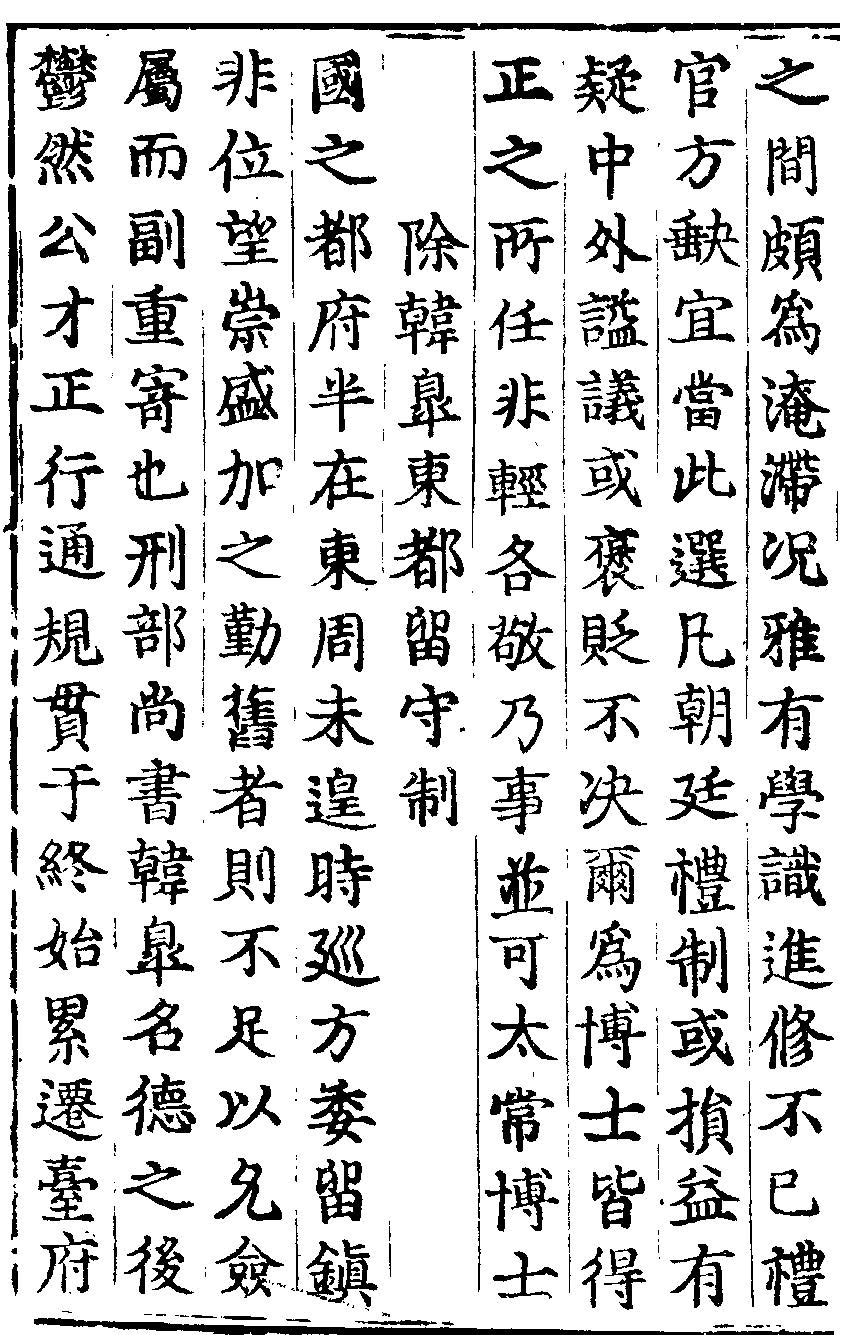 之間頗爲淹滯况雅有學識進修不已禮
官方缺宜當此選凡朝廷禮制或損益有
疑中外謚議或褒貶不决爾爲博士皆得
正之所任非輕各敬乃事並可太常博士
除韓臯東都留守制
國之都府半在東周未遑時廵方委留鎭
非位望崇盛加之勤舊者則不足以允僉
屬而副重寄也刑部尚書韓臯名德之後
鬱然公才正行通規貫于終始累遷臺府